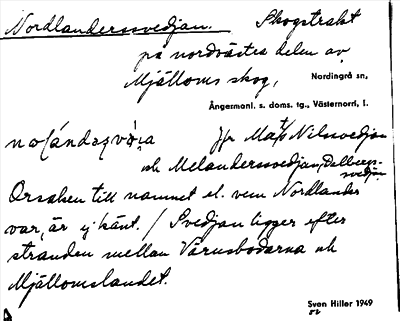 Nordlanderssvedjan. Skogstrakt
på nordvästra delen av
Mjälloms skog, Nordingrå sn,
Ångermanl. s. doms. tg., Västernorrl. l.
Jfr Matts Nilssvedjan
och Melanderssvedjan, Dalbergs-
svedjan
Orsaken till namnet el. vem Nordlander
var, är ej känt. / Svedjan ligger efter
stranden mellan Vårnsbodarna och
Mjällomslandet.
Sven Hiller 1949